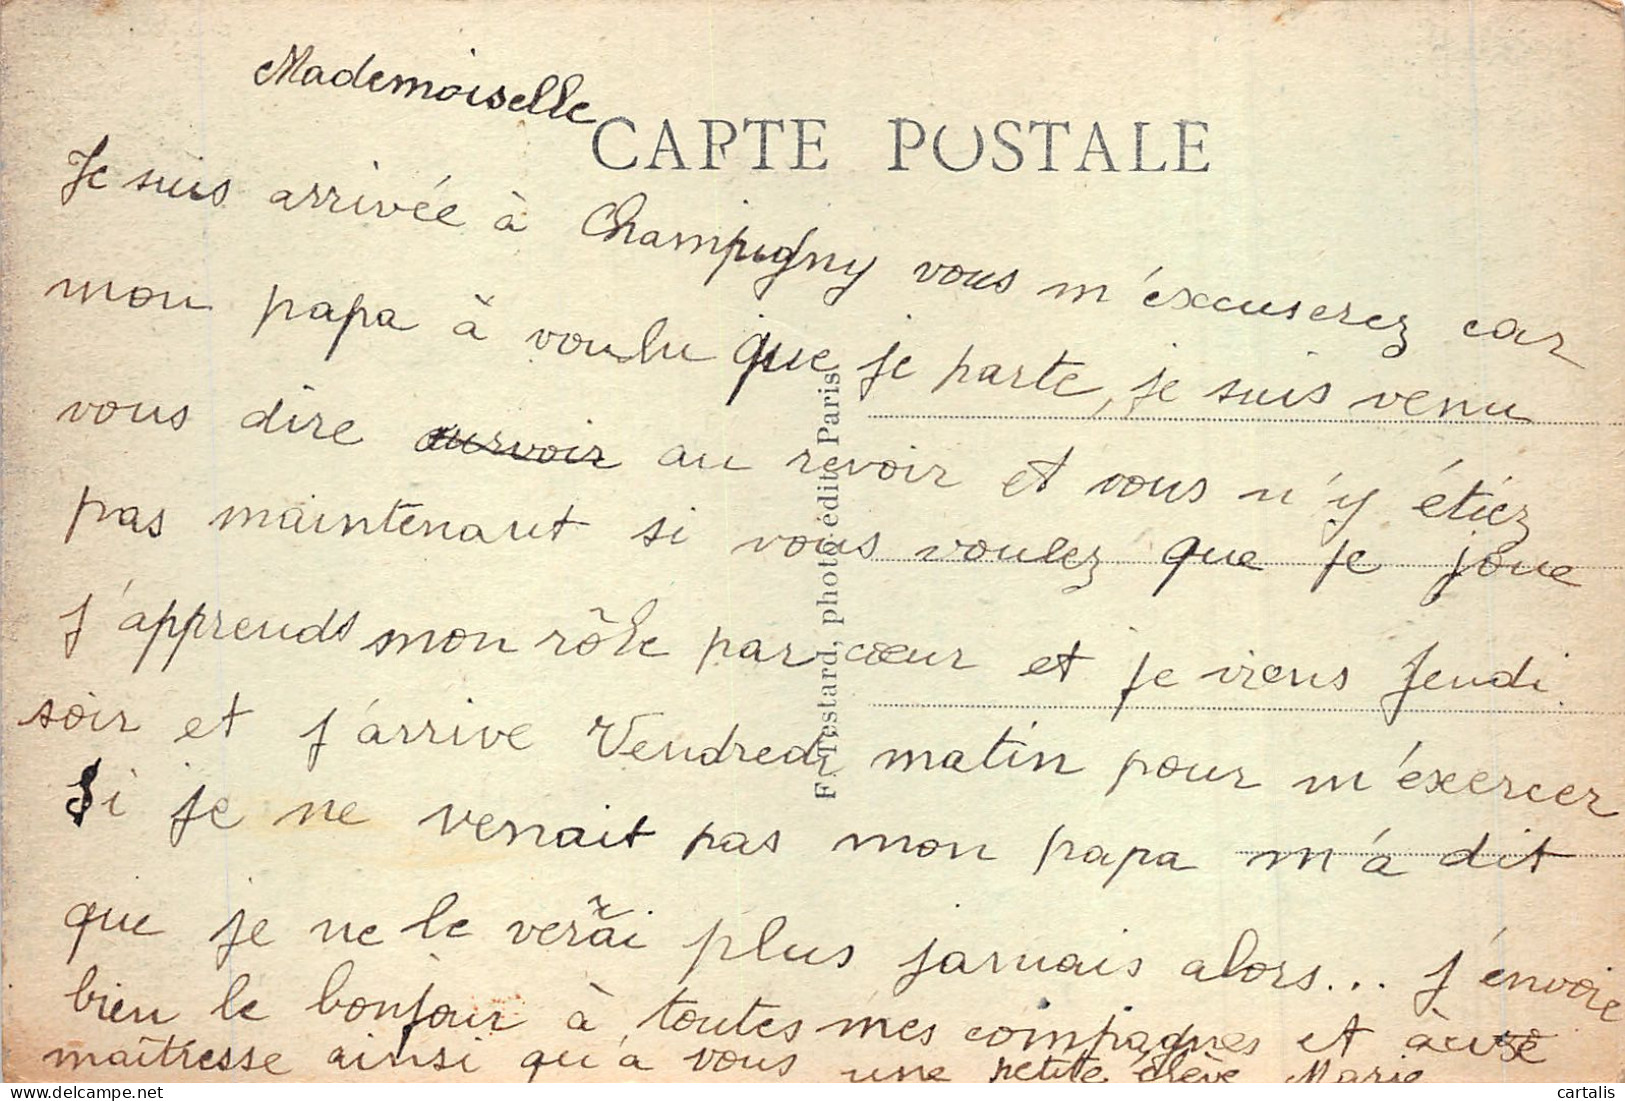 Mademoiselle
CARTE POSTALE
Je suis arrivée à Champigny vous m'éxcuserez car
mon papa à voulu que je parte, je suis venu
vous dire aurvoir au revoir et vous n'y étiez
pas maintenant si vous voulez que je joue
j'apprends mon rôle par cœur et je viens Jeudi
soir et j'arrive Vendredi matin pour m'éxercer
Si je ne venait pas mon papa m'a dit
que je ne le verrai plus jamais alors... J'envoie
bien le bonjour à toutes mes compagnes et à
maîtresse ainsi qu'à vous une petite élève Marie
F. Testard, photo-édit. Paris
cartalis